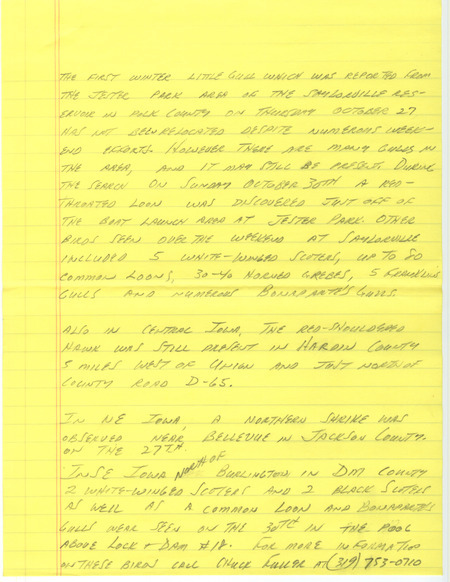 THE FIRST WINTER LITTLE GULL WHICH WAS REPORTED FROM
THE JESTER PARK AREA OF THE SAYLORVILLE RES-
ERVOIR IN POLK COUNTY ON THURSDAY OCTOBER 27
HAS NOT BEEN RELOCATED DESPITE NUMEROUS WEEK-
END EFFORTS. HOWEVER THERE ARE MANY GULLS IN
THE AREA, AND IT MAY STILL BE PRESENT. DURING
THE SEARCH ON SUNDAY OCTOBER 30TH A RED-
THROATED LOON WAS DISCOVERED JUST OFF OF
THE BOAT LAUNCH AREA AT JESTER PARK. OTHER
BIRDS SEEN OVER THE WEEKEND AT SAYLORVILLE
INCLUDED 5 WHITE-WINGED SCOTERS, UP TO 80
COMMON LOONS, 30-40 HORNED GREBES, 5 FRANKLINS
GULLS AND NUMEROUS BONAPARTE'S GULLS.
ALSO IN CENTRAL IOWA, THE RED-SHOULDERED
HAWK WAS STILL PRESENT IN HARDIN COUNTY
5 MILES WEST OF UNION AND JUST NORTH OF
COUNTY ROAD D-65.
IN NE IOWA, A NORTHERN SHRIKE WAS
OBSERVED NEAR BELLEVUE IN JACKSON COUNTY.
ON THE 27TH.
IN SE IOWA NORTH OF BURLINGTON IN DM COUNTY
2 WHITE-WINGED SCOTERS AND 2 BLACK SCOTERS
AS WELL AS A COMMON LOON AND BONAPARTE'S
GULLS WEAR SEEN ON THE 30TH IN THE POOL
ABOVE LOCK + DAM #18. FOR MORE INFORMATION
ON THESE BIRDS CALL CHUCK FULLER AT (319) 753-0710